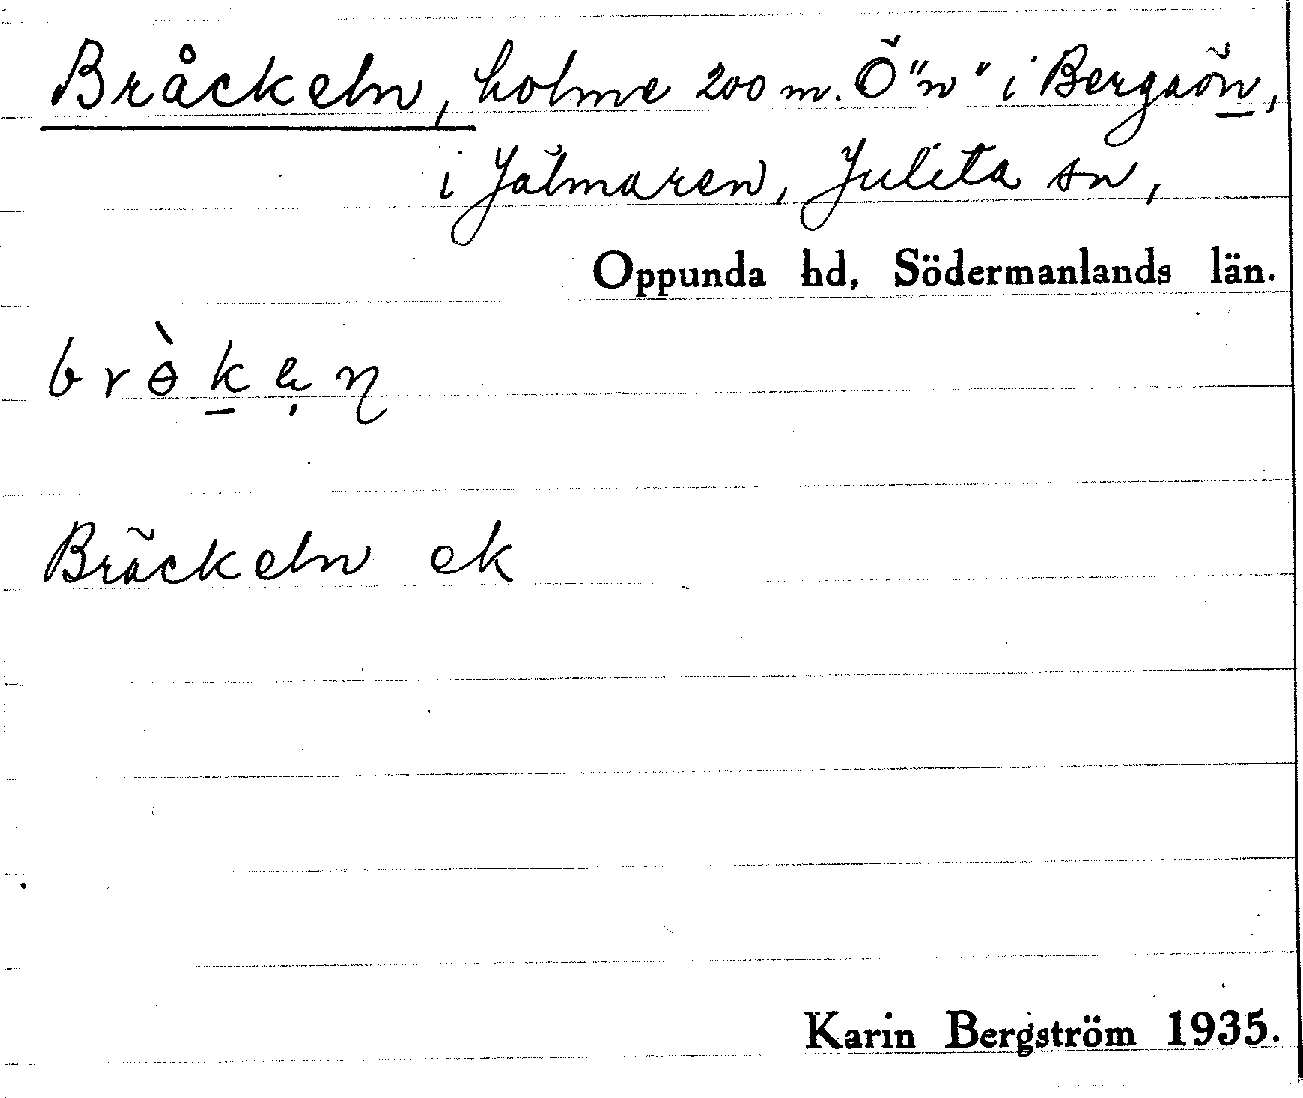 Bråckeln, holme 200 m. Ö "n" i Bergaön,
i Jälmaren, Julita sn,
Oppunda hd, Södermanlands län.
Bräckeln ek
Karin Bergström 1935.